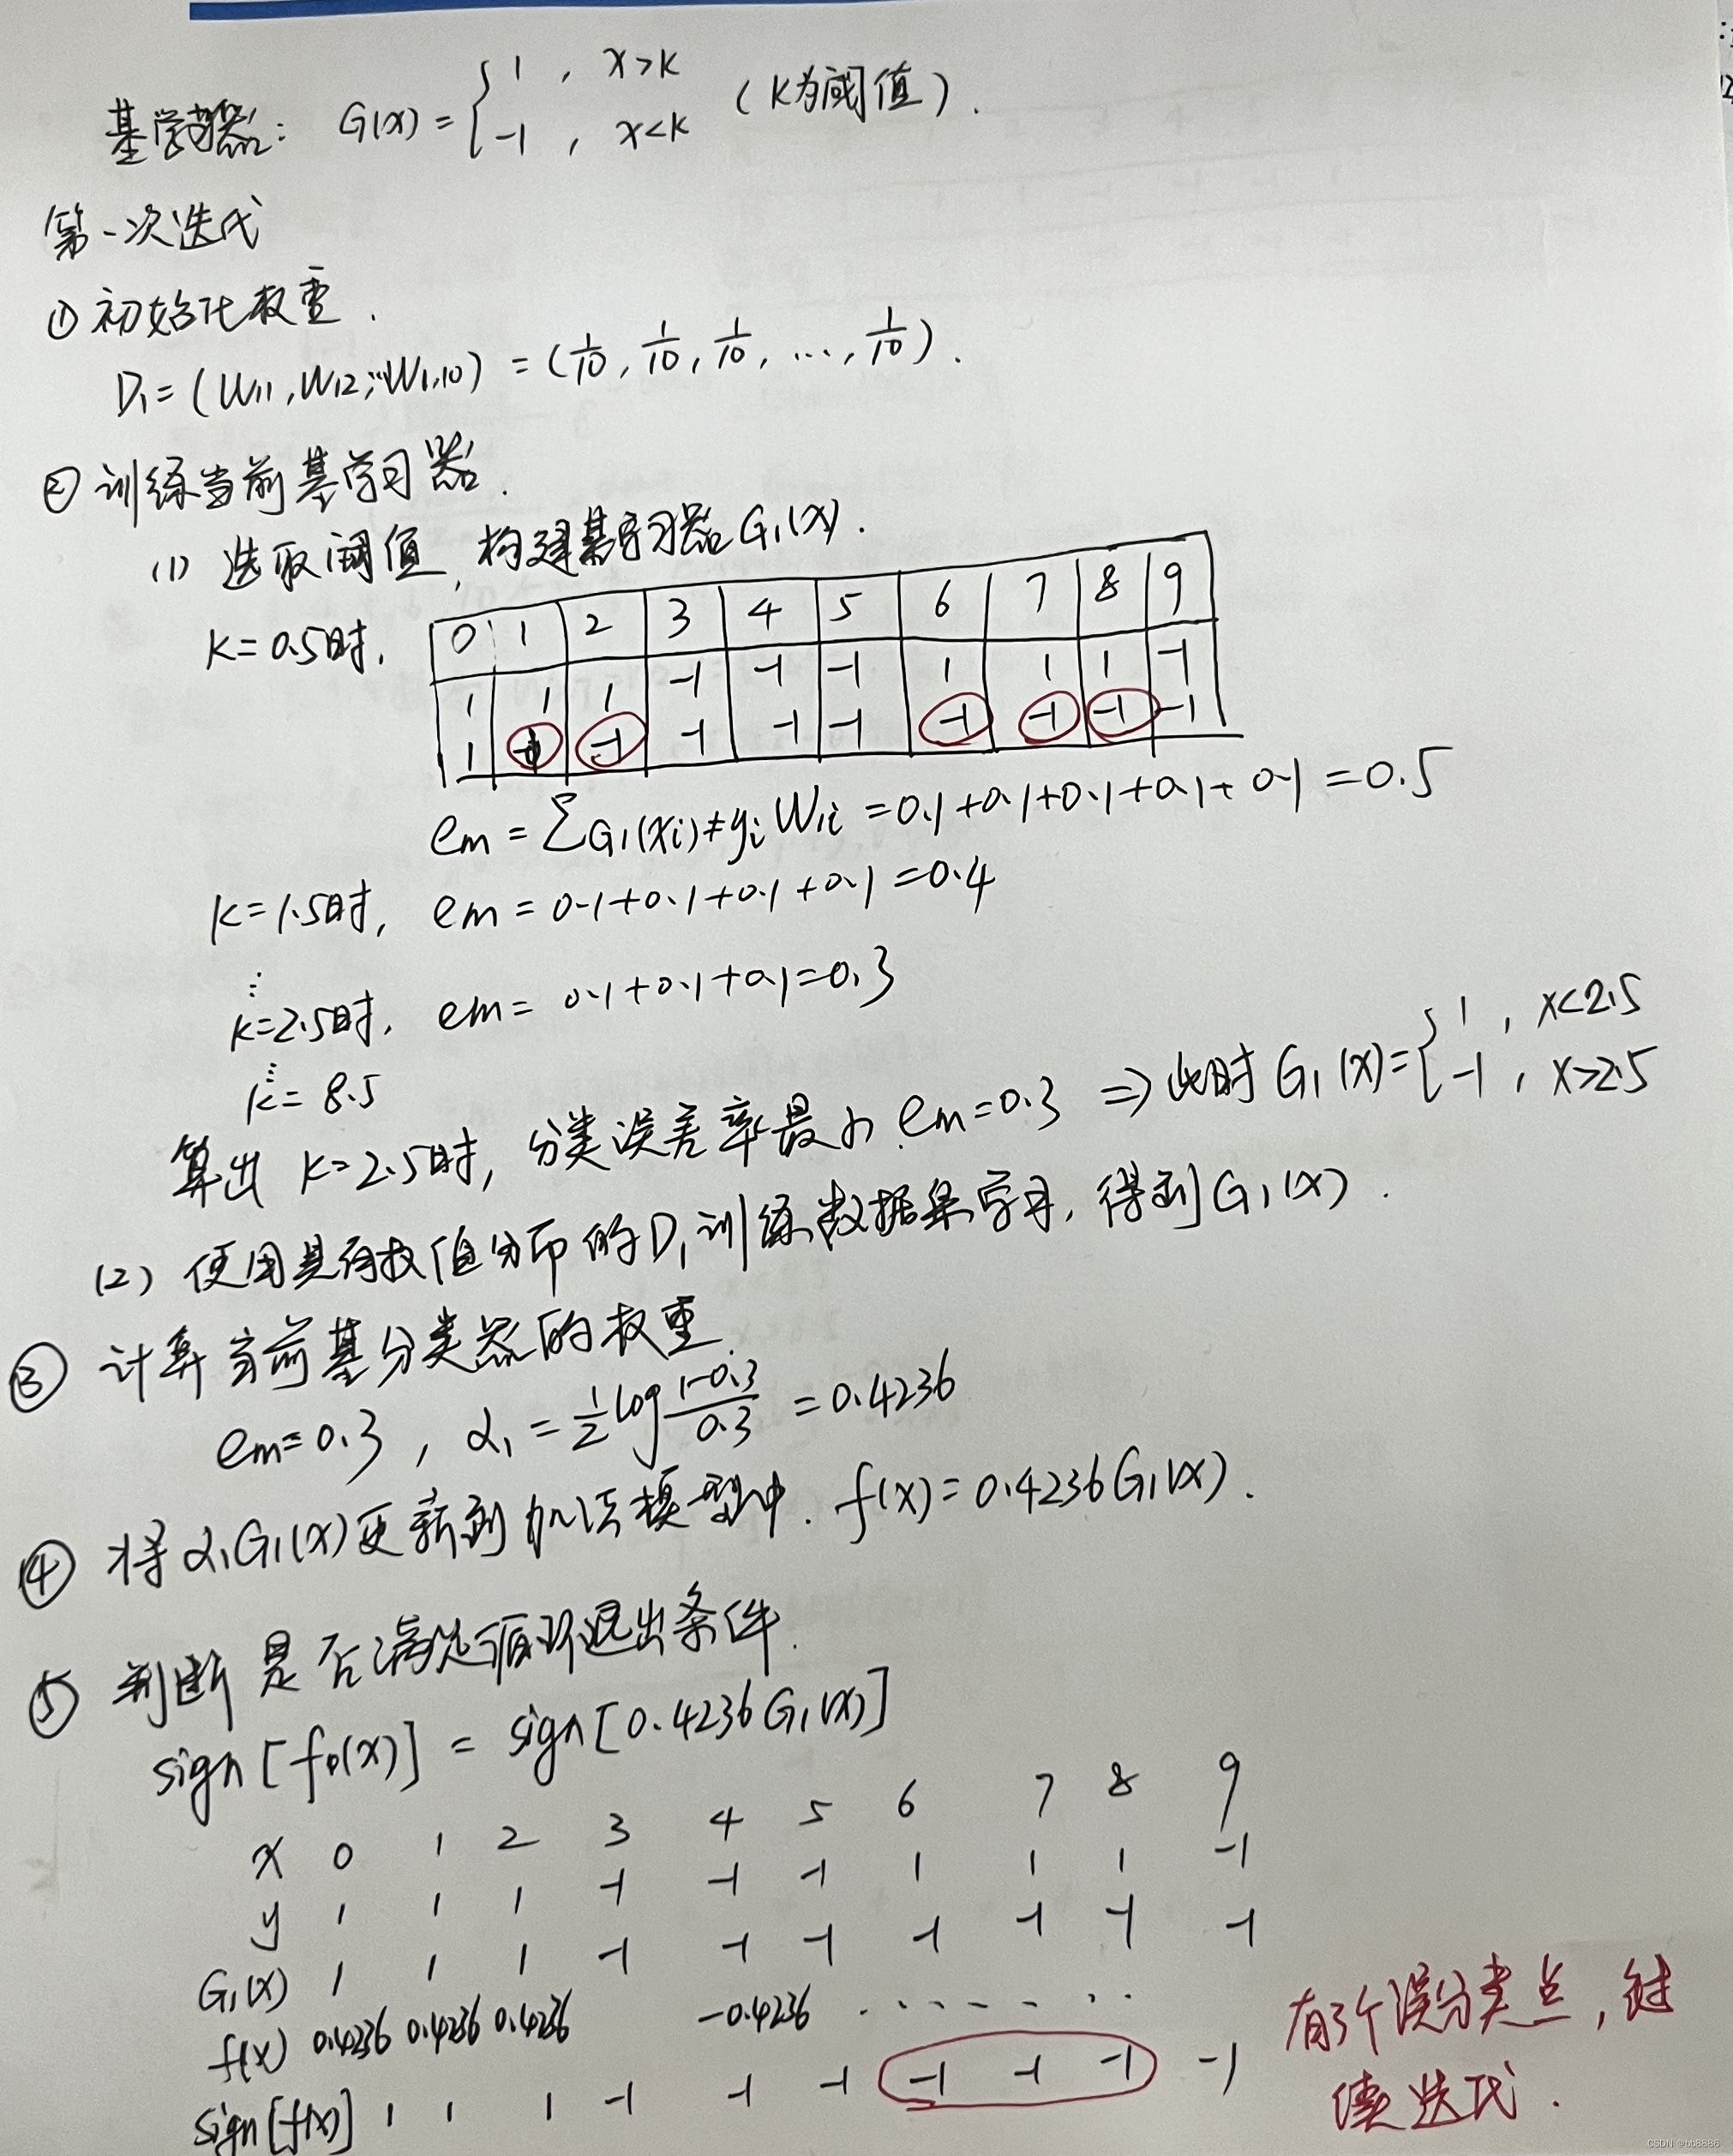 基学习器: G(x) = { 1 , x>k
-1 , x<k (k为阈值).
第一次迭代
① 初始化权重.
D₁=(W₁₁,W₁₂,…W₁,₁₀) = (1/10, 1/10, 1/10, …, 1/10).
② 训练当前基学习器.
(1) 选取阈值, 构建基学习器G₁(x).
k=0.5时,
0 1 2 3 4 5 6 7 8 9
1 1 1 -1 -1 -1 1 1 1 -1
1 -1 -1 -1 -1 -1 -1 -1 -1 -1
em = ΣG₁(xi)≠yi W₁i = 0.1+0.1+0.1+0.1+0.1=0.5
k=1.5时, em = 0.1+0.1+0.1+0.1=0.4
⋮
k=2.5时, em= 0.1+0.1+0.1=0.3
⋮
k=8.5
算出 k=2.5时, 分类误差率最小 em=0.3 ⇒ 此时 G₁(x)={ 1 , x<2.5
-1 , x>2.5
(2) 使用具有权值分布的D₁训练数据集学习, 得到G₁(x).
③ 计算当前基分类器的权重.
em=0.3 , α₁ = 1/2 log (1-0.3)/0.3 = 0.4236
④ 将α₁G₁(x)更新到加法模型中. f(x)=0.4236G₁(x).
⑤ 判断是否满足循环退出条件.
sign[f₀(x)] = sign[0.4236G₁(x)]
x 0 1 2 3 4 5 6 7 8 9
y 1 1 1 -1 -1 -1 1 1 1 -1
G₁(x) 1 1 1 -1 -1 -1 -1 -1 -1 -1
f(x) 0.4236 0.4236 0.4236 -0.4236 ······
sign[f(x)] 1 1 1 -1 -1 -1 -1 -1 -1 -1
有3个误分类点, 继
续迭代.
CSDN @bb8886